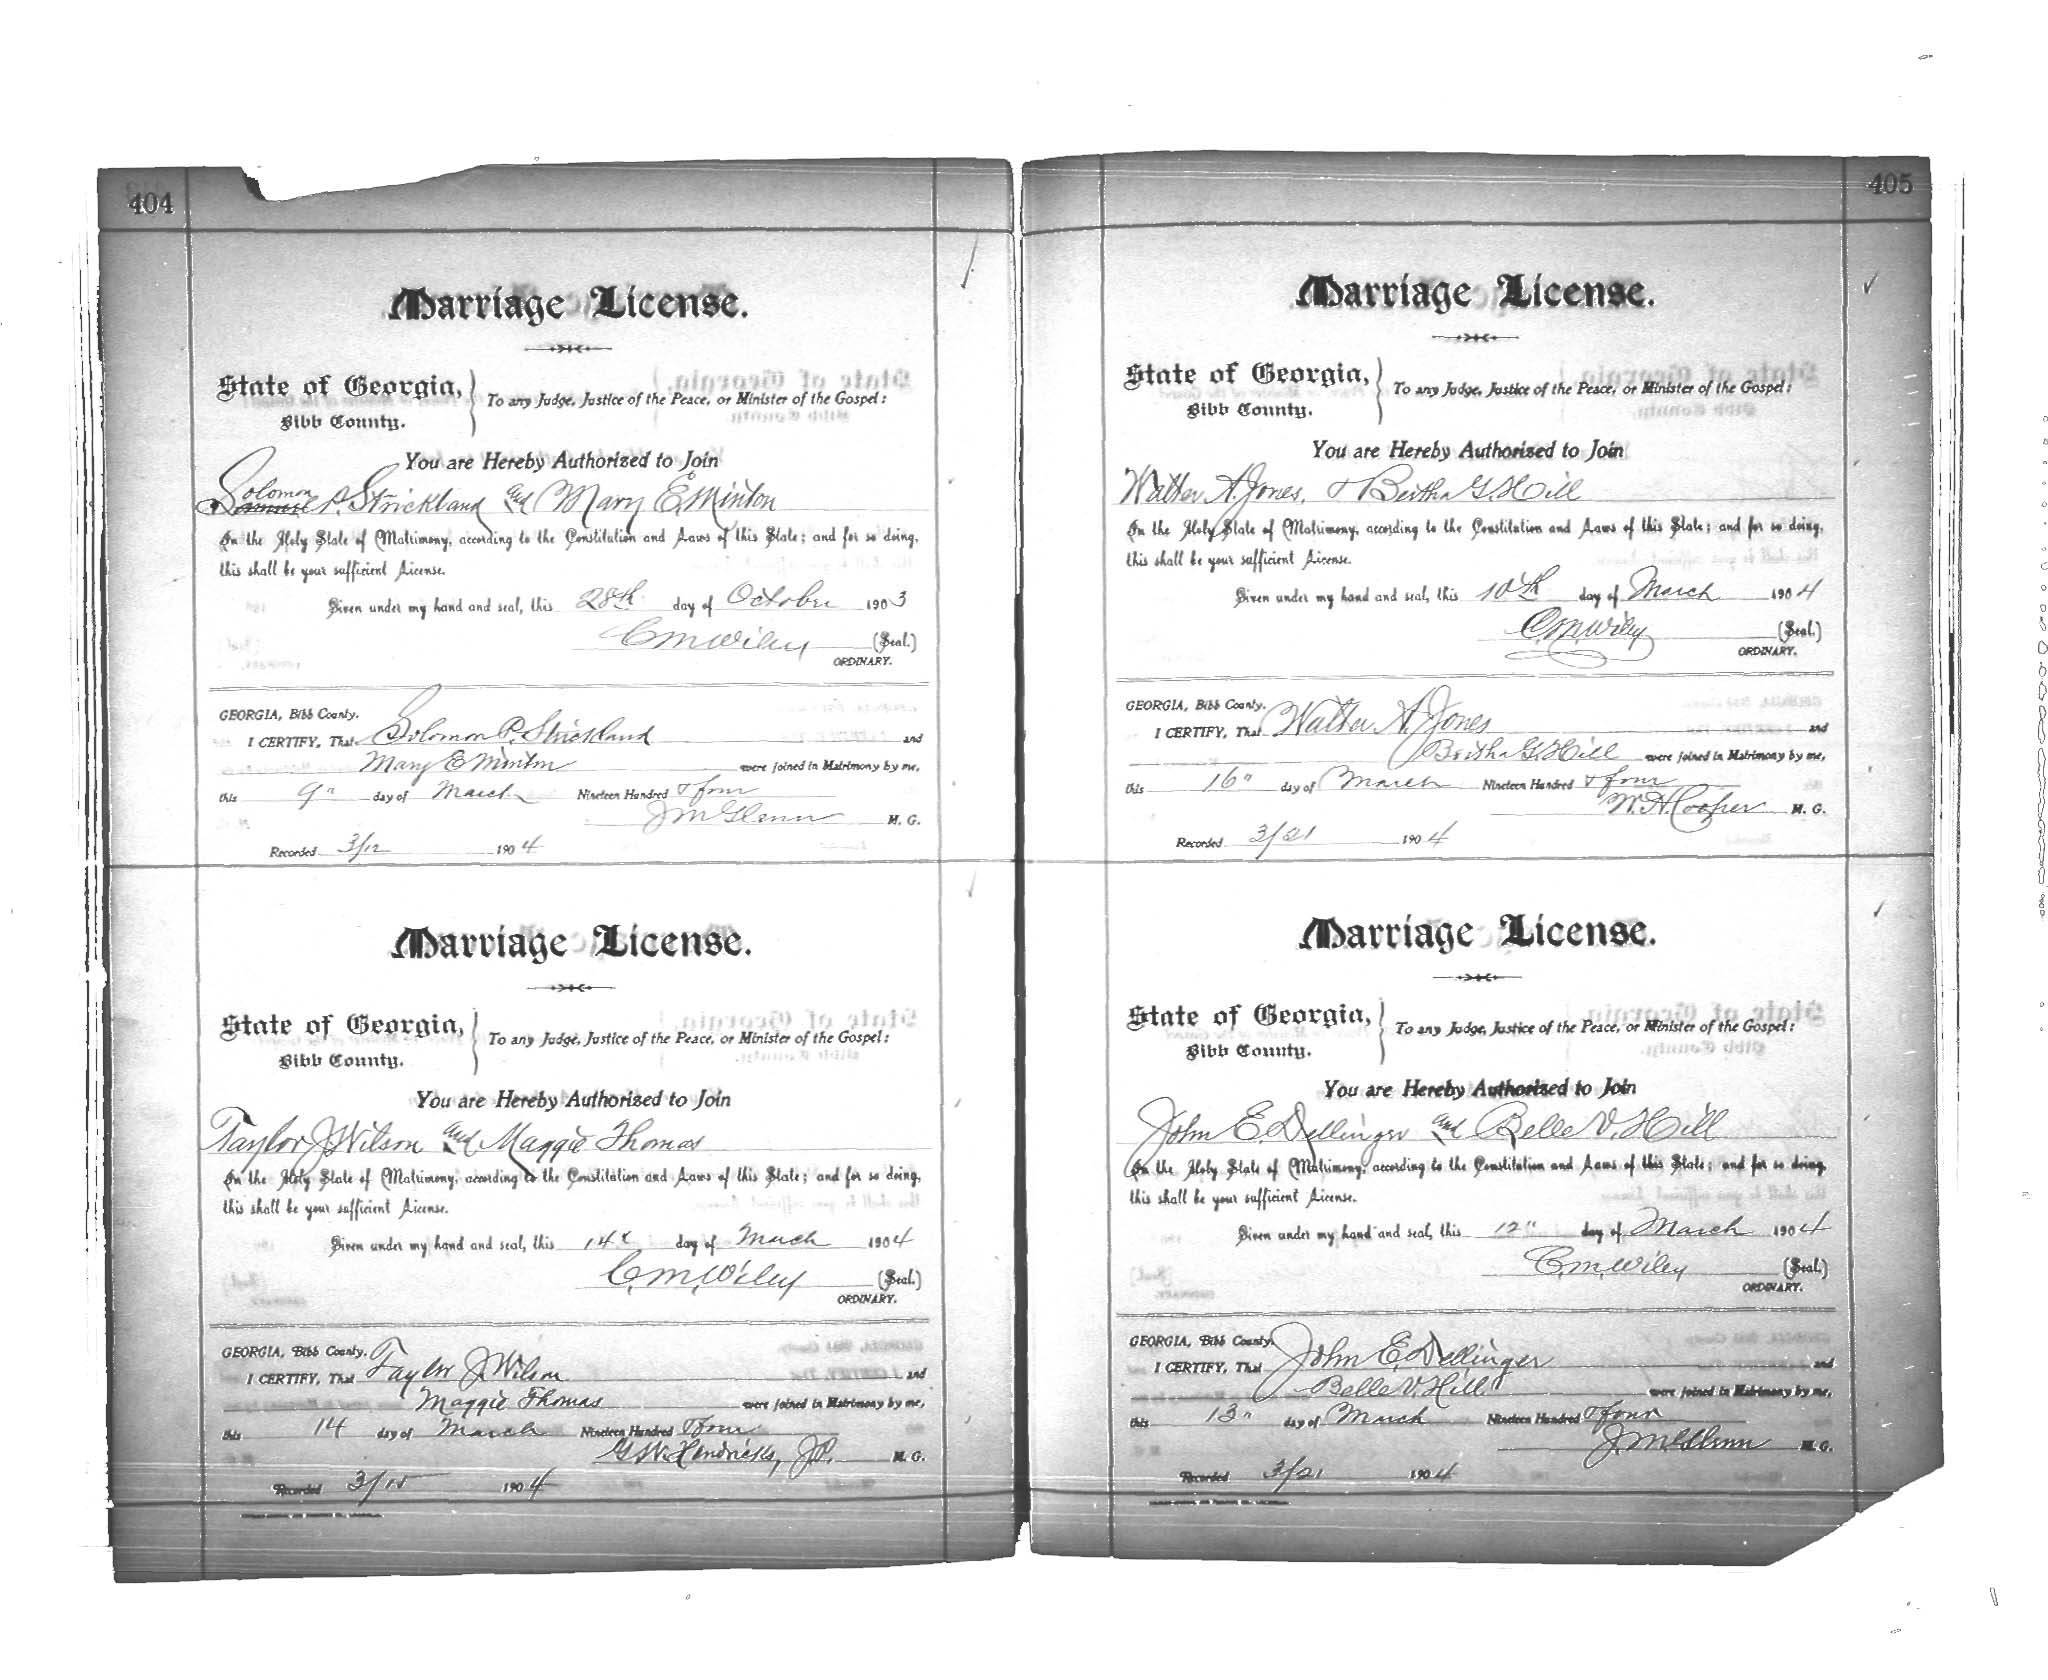 404
Marriage License.
State of Georgia,
Bibb County.
To any Judge, Justice of the Peace, or Minister of the Gospel:
You are Hereby Authorized to Join
Solomon
P. Strickland and Mary E. Minton
In the Holy State of Matrimony, according to the Constitution and Laws of this State; and for so doing,
this shall be your sufficient License.
Given under my hand and seal, this 28th day of October 1903
C. M. Wiley (Seal.)
ORDINARY.
GEORGIA, Bibb County.
I CERTIFY, That Solomon P. Strickland and
Mary E Minton were joined in Matrimony by me,
this 9" day of March Nineteen Hundred & four
J M Glenn M. G.
Recorded 3/12 1904
Marriage License.
State of Georgia,
Bibb County.
To any Judge, Justice of the Peace, or Minister of the Gospel:
You are Hereby Authorized to Join
Taylor J Wilson and Maggie Thomas
In the Holy State of Matrimony, according to the Constitution and Laws of this State; and for so doing,
this shall be your sufficient License.
Given under my hand and seal, this 14th day of March 1904
C. M. Wiley (Seal.)
ORDINARY.
GEORGIA, Bibb County.
I CERTIFY, That Taylor J Wilson and
Maggie Thomas were joined in Matrimony by me,
this 14 day of March Nineteen Hundred & four
G. W. Hendricks, J.P. M. G.
Recorded 3/15 1904
405
Marriage License.
State of Georgia,
Bibb County.
To any Judge, Justice of the Peace, or Minister of the Gospel:
You are Hereby Authorized to Join
Walter A. Jones, & Bertha G. Hill
In the Holy State of Matrimony, according to the Constitution and Laws of this State; and for so doing,
this shall be your sufficient License.
Given under my hand and seal, this 10th day of March 1904
C. M. Wiley (Seal.)
ORDINARY.
GEORGIA, Bibb County.
I CERTIFY, That Walter A. Jones and
Bertha G. Hill were joined in Matrimony by me,
this 16" day of March Nineteen Hundred & four
W. H. Cooper M. G.
Recorded 3/21 1904
Marriage License.
State of Georgia,
Bibb County.
To any Judge, Justice of the Peace, or Minister of the Gospel:
You are Hereby Authorized to Join
John E. Dellinger and Belle V. Hill
In the Holy State of Matrimony, according to the Constitution and Laws of this State; and for so doing,
this shall be your sufficient License.
Given under my hand and seal, this 12" day of March 1904
C. M. Wiley (Seal.)
ORDINARY.
GEORGIA, Bibb County.
I CERTIFY, That John E. Dellinger and
Belle V. Hill were joined in Matrimony by me,
this 13" day of March Nineteen Hundred & four
J. M. Glenn M. G.
Recorded 3/21 1904